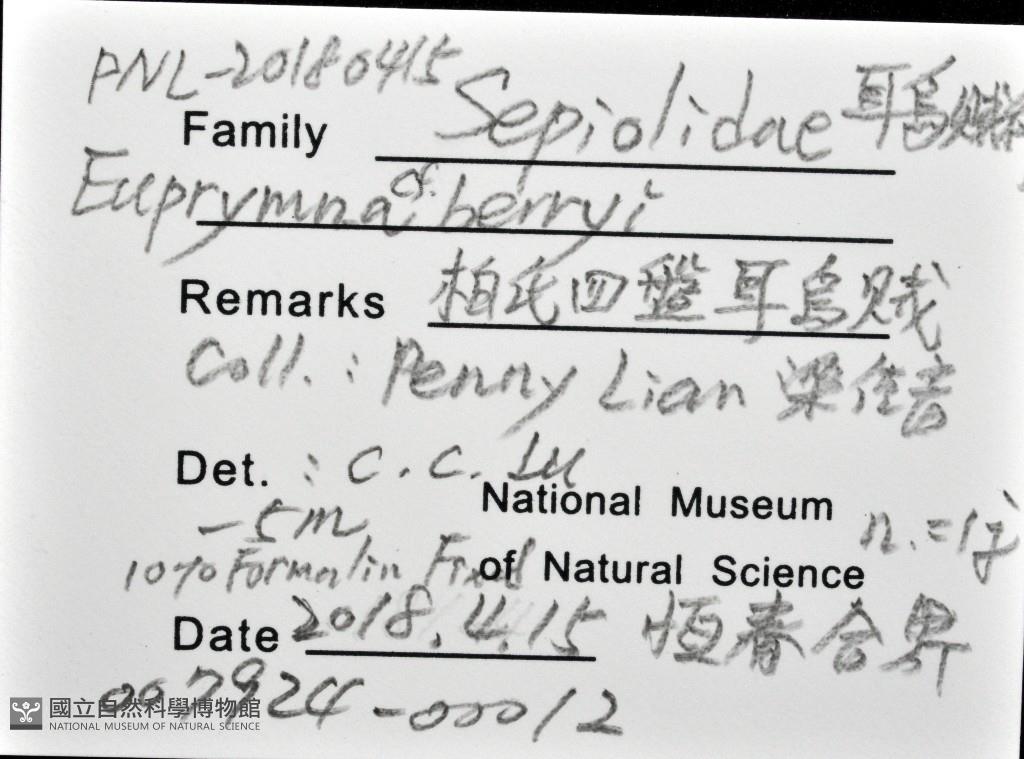 PNL-20180415
Family Sepiolidae 耳烏賊
Euprymna cf. berryi
Remarks 柏氏四盤耳烏賊
Coll. : Penny Lian 梁佳音
Det. : C. C. Lu
National Museum
-5m
n.=1j
10% Formalin Fixed
of Natural Science
Date 2018.4.15 恒春合界
007924-00012
國立自然科學博物館
NATIONAL MUSEUM OF NATURAL SCIENCE